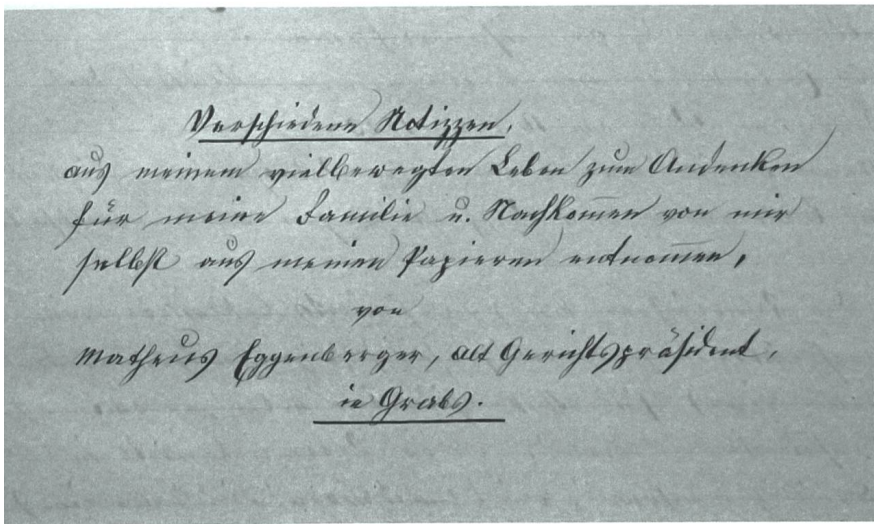 Verschiedene Notizzen,
aus meinem vielbewegten Leben zum Andenken
für meine Familie u. Nachkom̅en von mir
selbst aus meinen Papieren entnom̅en,
von
Matheus Eggenberger, alt Gerichtspräsident,
in Grabs.